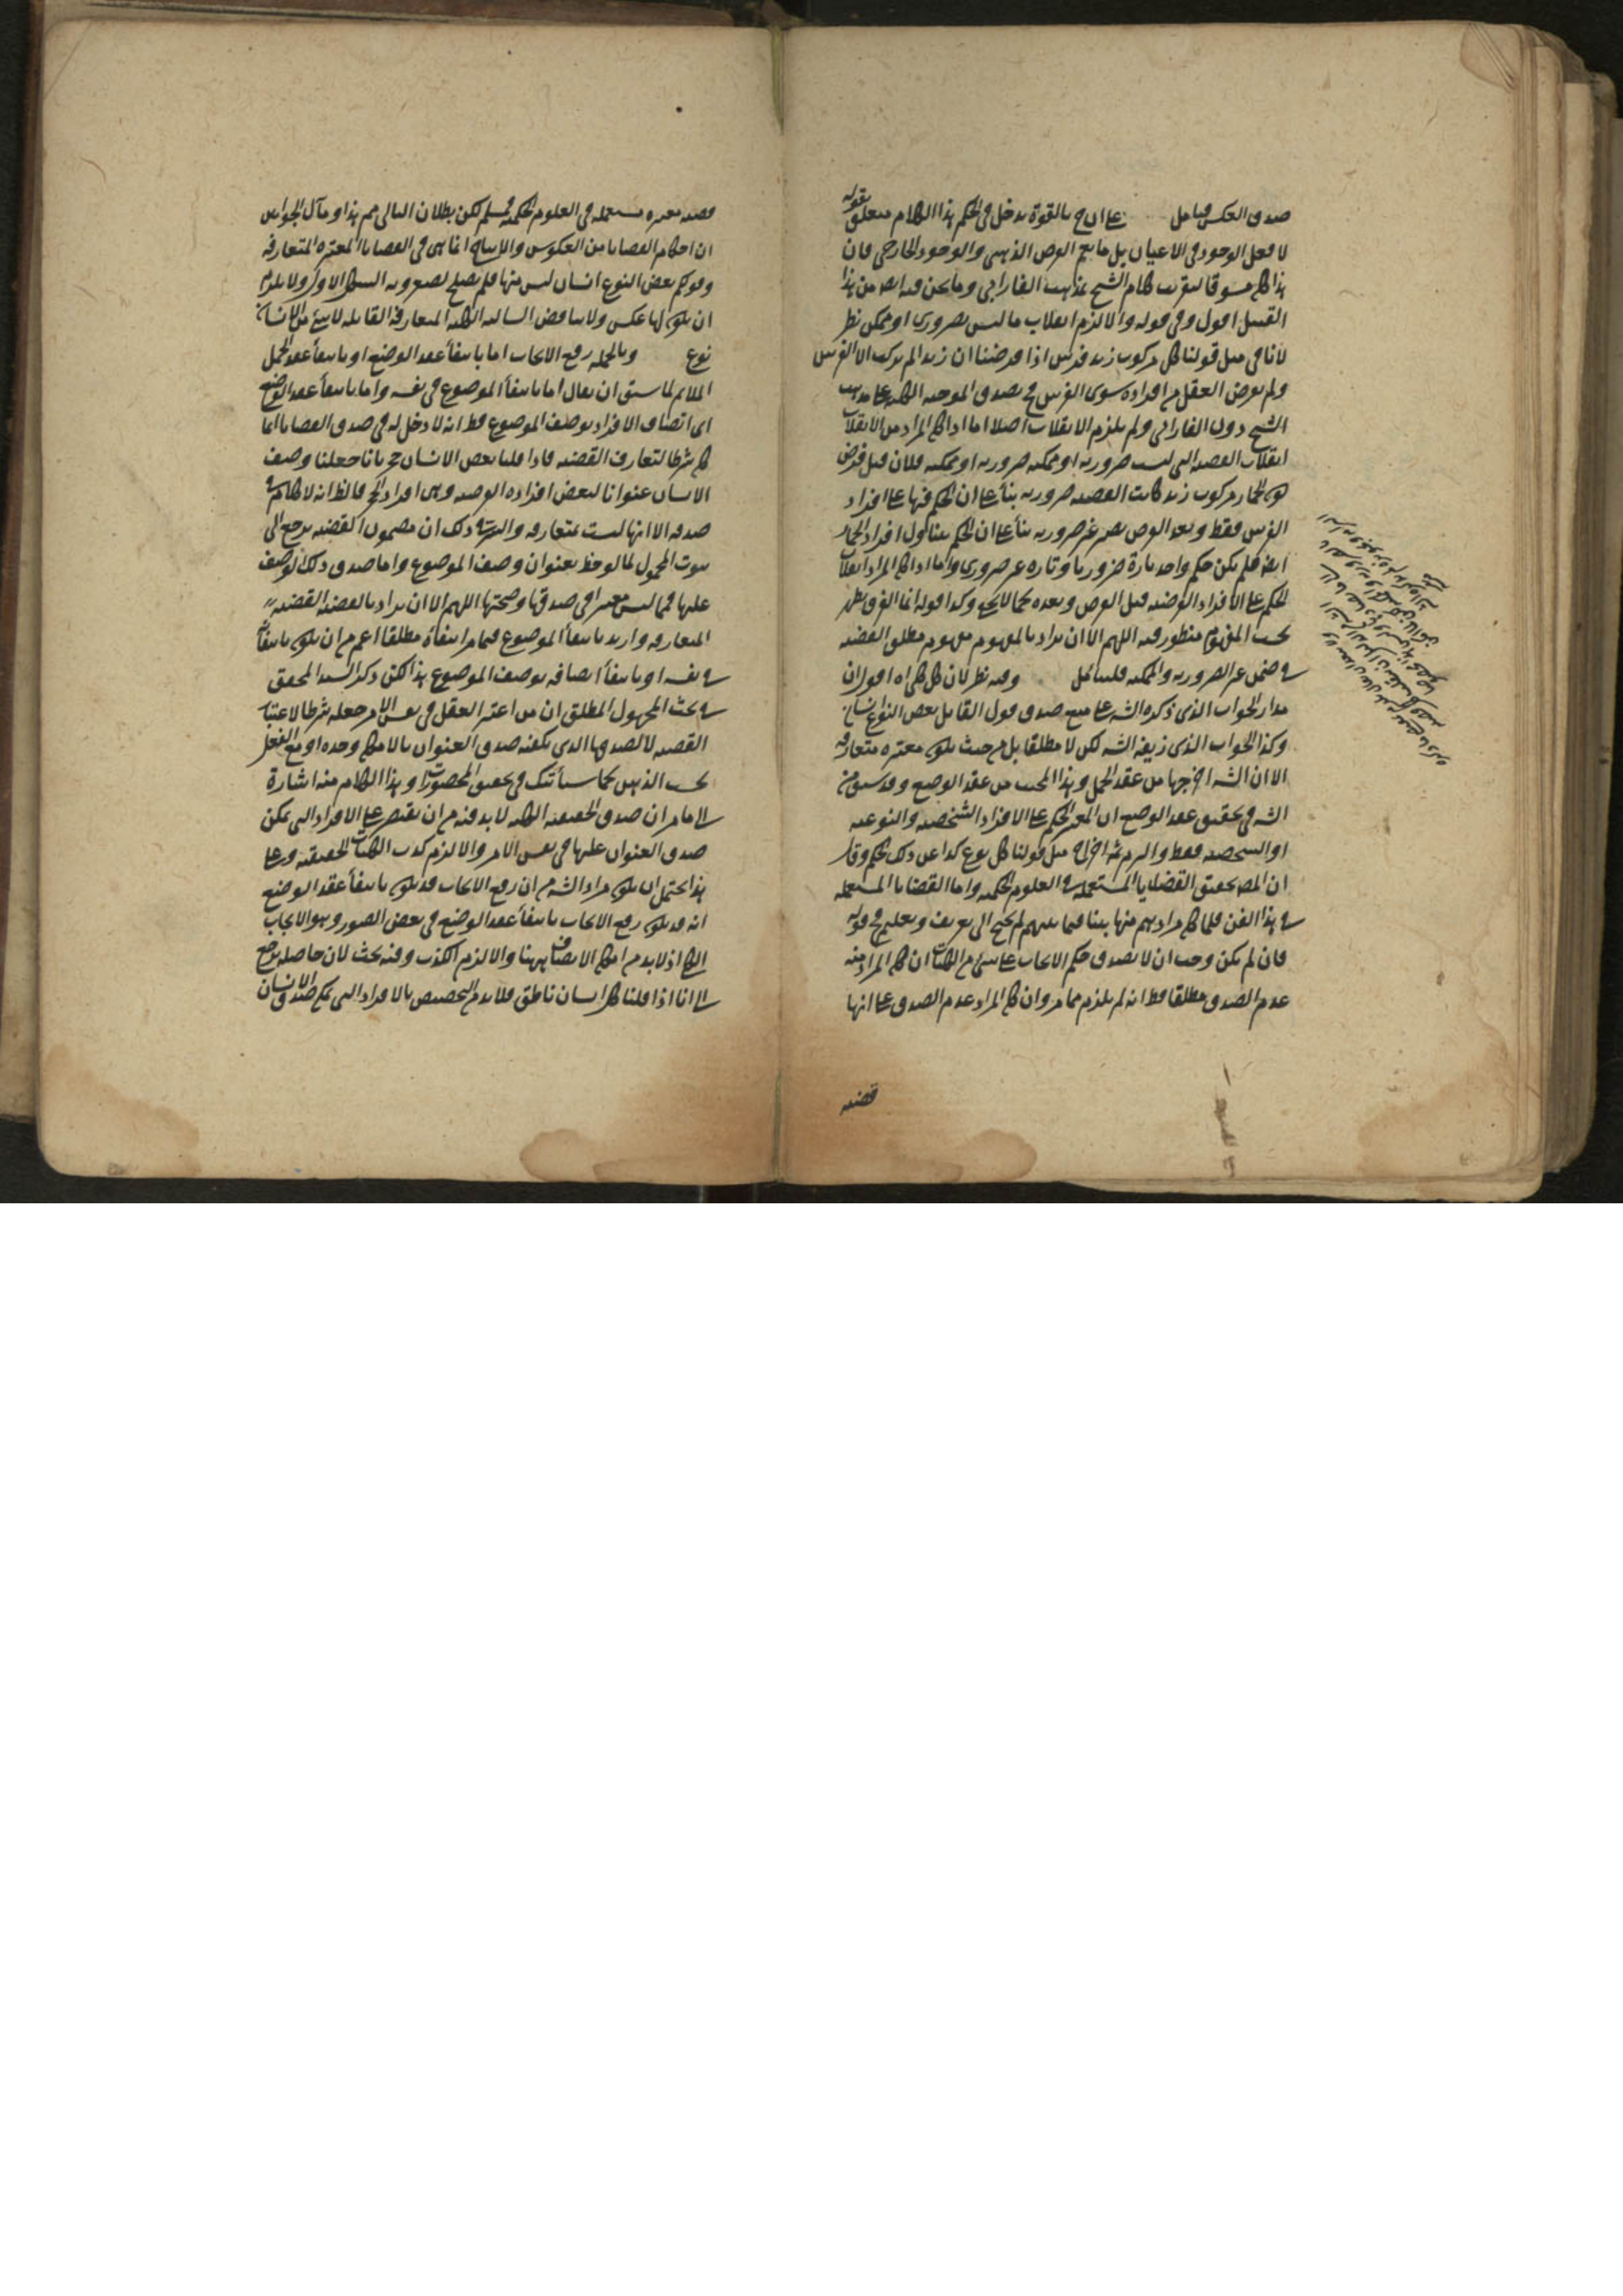 صدق العكس فتأمل على ان ج بالقوة يدخل في الحكم هذا الكلام متعلق بقوله
لا فعل الوجود في الاعيان بل ما يعم الفرض الذهني والوجود الخارجي فان
هذا كلام الشيخ بمذهب الفارابي وما نحن فيه ايضا من هذا
القبيل اقول وفي قوله والا لزم انقلاب ما ليس بضروري او ممكن نظر
لأنا في مثل قولنا كل مركوب زيد فرس اذا فرضنا ان زيدا لم يركب الا الفرس
ولم يفرض العقل من افراده سوى الفرس يصدق الموجبة الكلية على مذهب
الشيخ دون الفارابي ولم يلزم الانقلاب اصلا اما اذا كان المراد من الانقلاب
انقلاب القضية التي ليست ضرورية او ممكنة ضرورية او ممكنة فلان قبل فرض
كون الحمار مركوب زيد كانت القضية ضرورية بناء على ان الحكم فيها على افراد
الفرس فقط وبعد الفرض يصير غير ضرورية بناء على ان الحكم يتناول افراد الحمار
ايضا فلم يكن حكم واحد تارة ضروريا وتارة غير ضروري واما اذا كان المراد انقلاب
الحكم على الافراد الفرضية قبل الفرض وبعده كما لا يخفى وكذا قوله انما الفرق يظهر
بحسب المفهوم منظور فيه اللهم الا ان يراد بالمفهوم مفهوم مطلق القضية
في ضمن غير الضرورية والممكنة فليتأمل وفيه نظر لان كل كلي اه اقول ان
مدار الجواب الذي ذكره الشه على منع صدق قول القايل بعض النوع انسان
وكذا الجواب الذي زيفه الشه لكن لا مطلقا بل من حيث يكون معتبرة متعارفة
الا ان الشه اخرجها من عقد الحمل وهذا المجيب من عقد الوضع وقد سبق من
الشه في تحقيق عقد الوضع ان المعتبر الحكم على الافراد الشخصية والنوعية
او الشخصية فقط مثل قولنا كل نوع كذا عن ذلك الحكم وقال
ان المصر تحقيق القضايا المستعملة في العلوم الحكمية واما القضايا المستعملة
في هذا الفن فلما كان مرادهم منها بينا فيما بينهم لم يحتج الى تعريف وتعليم قوله
فان لم يكن وجب ان لا يصدق حكم الايجاب على شيء من الكليات ان كان المراد منه
عدم الصدق مطلقا فظ انه لم يلزم مما مر وان كان المراد عدم الصدق على انها
قضية
قضية معتبرة مستعملة في العلوم الحكمية فمسلم لكن بطلان التالي مم هذا ومآل الجوابين
ان احكام القضايا من العكوس والانتاج انما هي في القضايا المعتبرة المتعارفة
وقولكم بعض النوع انسان ليس منها فلم يصلح لصغروية الشكل الاول ولا يلزم
ان يكون لها عكس ولا يناقض السالبة الكلية المتعارفة القايلة لا شيء من الانسان
نوع وبالجملة رفع الايجاب اما بانتفاء عقد الوضع او بانتفاء عقد الحمل
الملايم لما سبق ان يقال اما بانتفاء الموضوع في نفسه واما بانتفاء عقد الوضع
اي اتصاف الافراد بوصف الموضوع فظ انه لا دخل له في صدق القضايا انما
كان شرطا لتعارف القضية فاذا قلنا بعض الانسان حجر بانا جعلنا وصف
الانسان عنوانا لبعض افراده الفرضية وهي افراد الحجر فالظ انه لا كلام في
صدقه الا انها ليست بمتعارفة والسر في ذلك ان مضمون القضية يرجع الى
ثبوت المحمول لما لوحظ بعنوان وصف الموضوع واما صدق ذلك الوصف
عليها فمما ليس معتبرا في صدقها وصحتها اللهم الا ان يراد بالقضية القضية
المتعارفة واريد بانتفاء الموضوع فيما مر انتفاؤه مطلقا اعم من ان يكون بانتفائه
في نفسه او بانتفاء اتصافه بوصف الموضوع هذا لكن ذكر السيد المحقق
في بحث المجهول المطلق ان من اعتبر العقل في نفس الامر جعله شرطا لاعتبار
القضية لا لصدقها الذي يكفيه صدق العنوان بالامكان وحده او مع الفعل
بحسب الذهن كما سيأتيك في تحقيق المحصورات وهذا الكلام منه اشارة
الى ما مر ان صدق الحقيقية الكلية لا بد فيه من ان يقتصر على الافراد التي يمكن
صدق العنوان عليها في نفس الامر والا لزم كذب الكليات الحقيقية وعلى
هذا يحتمل ان يكون مراد الشه من ان رفع الايجاب قد يكون بانتفاء عقد الوضع
انه قد يكون رفع الايجاب بانتفاء عقد الوضع في بعض الصور وهو الايجاب
الكلي اذ لا بد من امكان الاتصاف ههنا والا لزم الكذب وفيه بحث لان حاصله يرجع
الى انا اذا قلنا كل انسان ناطق فلا بد من التخصيص بالافراد التي يمكن صدق الانسان